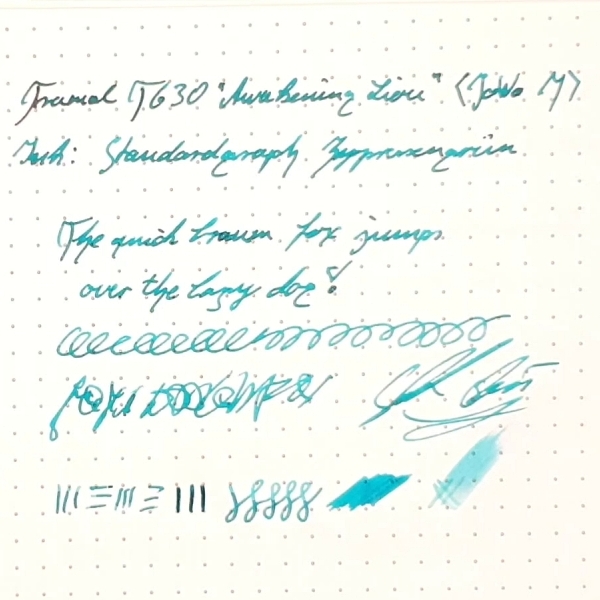 Tramol T630 "Awakening Lion" (JoWo M)
Ink: Standardgraph Zypressengrün
The quick brown fox jumps
over the lazy dog!